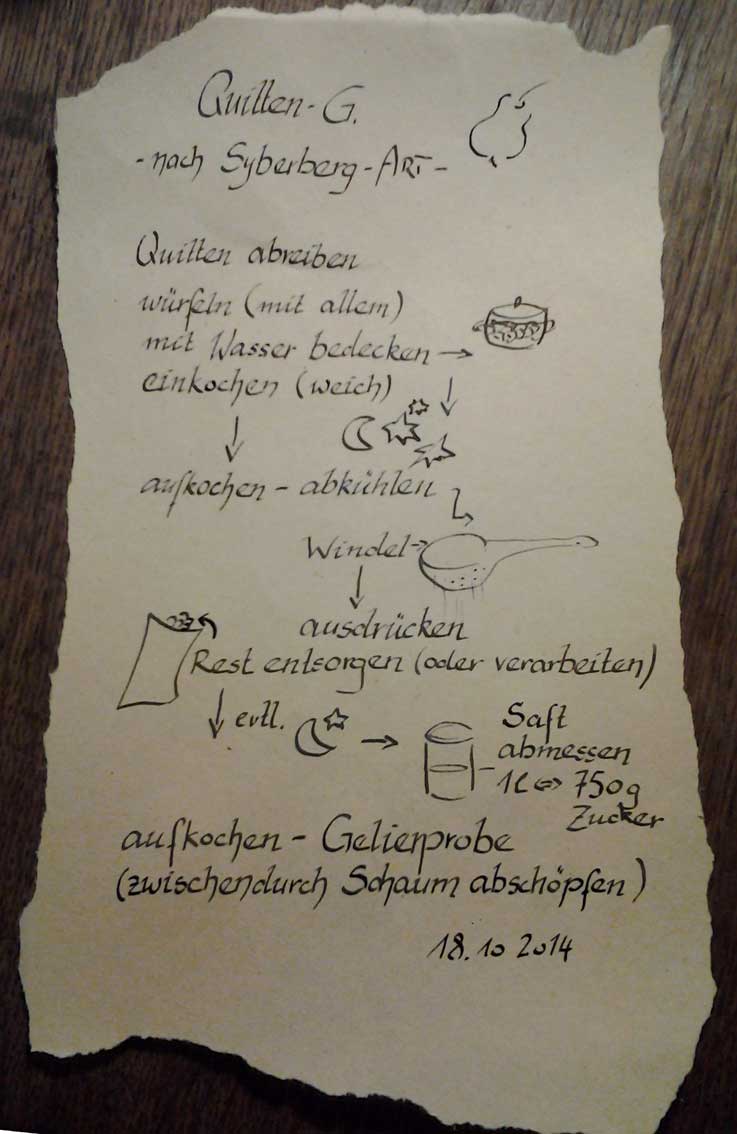 Quitten-G.
-nach Syberberg-ART-
Quitten abreiben
würfeln (mit allem)
mit Wasser bedecken →
einkochen (weich)
aufkochen - abkühlen
Windel →
ausdrücken
Rest entsorgen (oder verarbeiten)
evtl.
Saft
abmessen
1l ⇔ 750g
Zucker
aufkochen - Gelierprobe
(zwischendurch Schaum abschöpfen)
18.10 2014